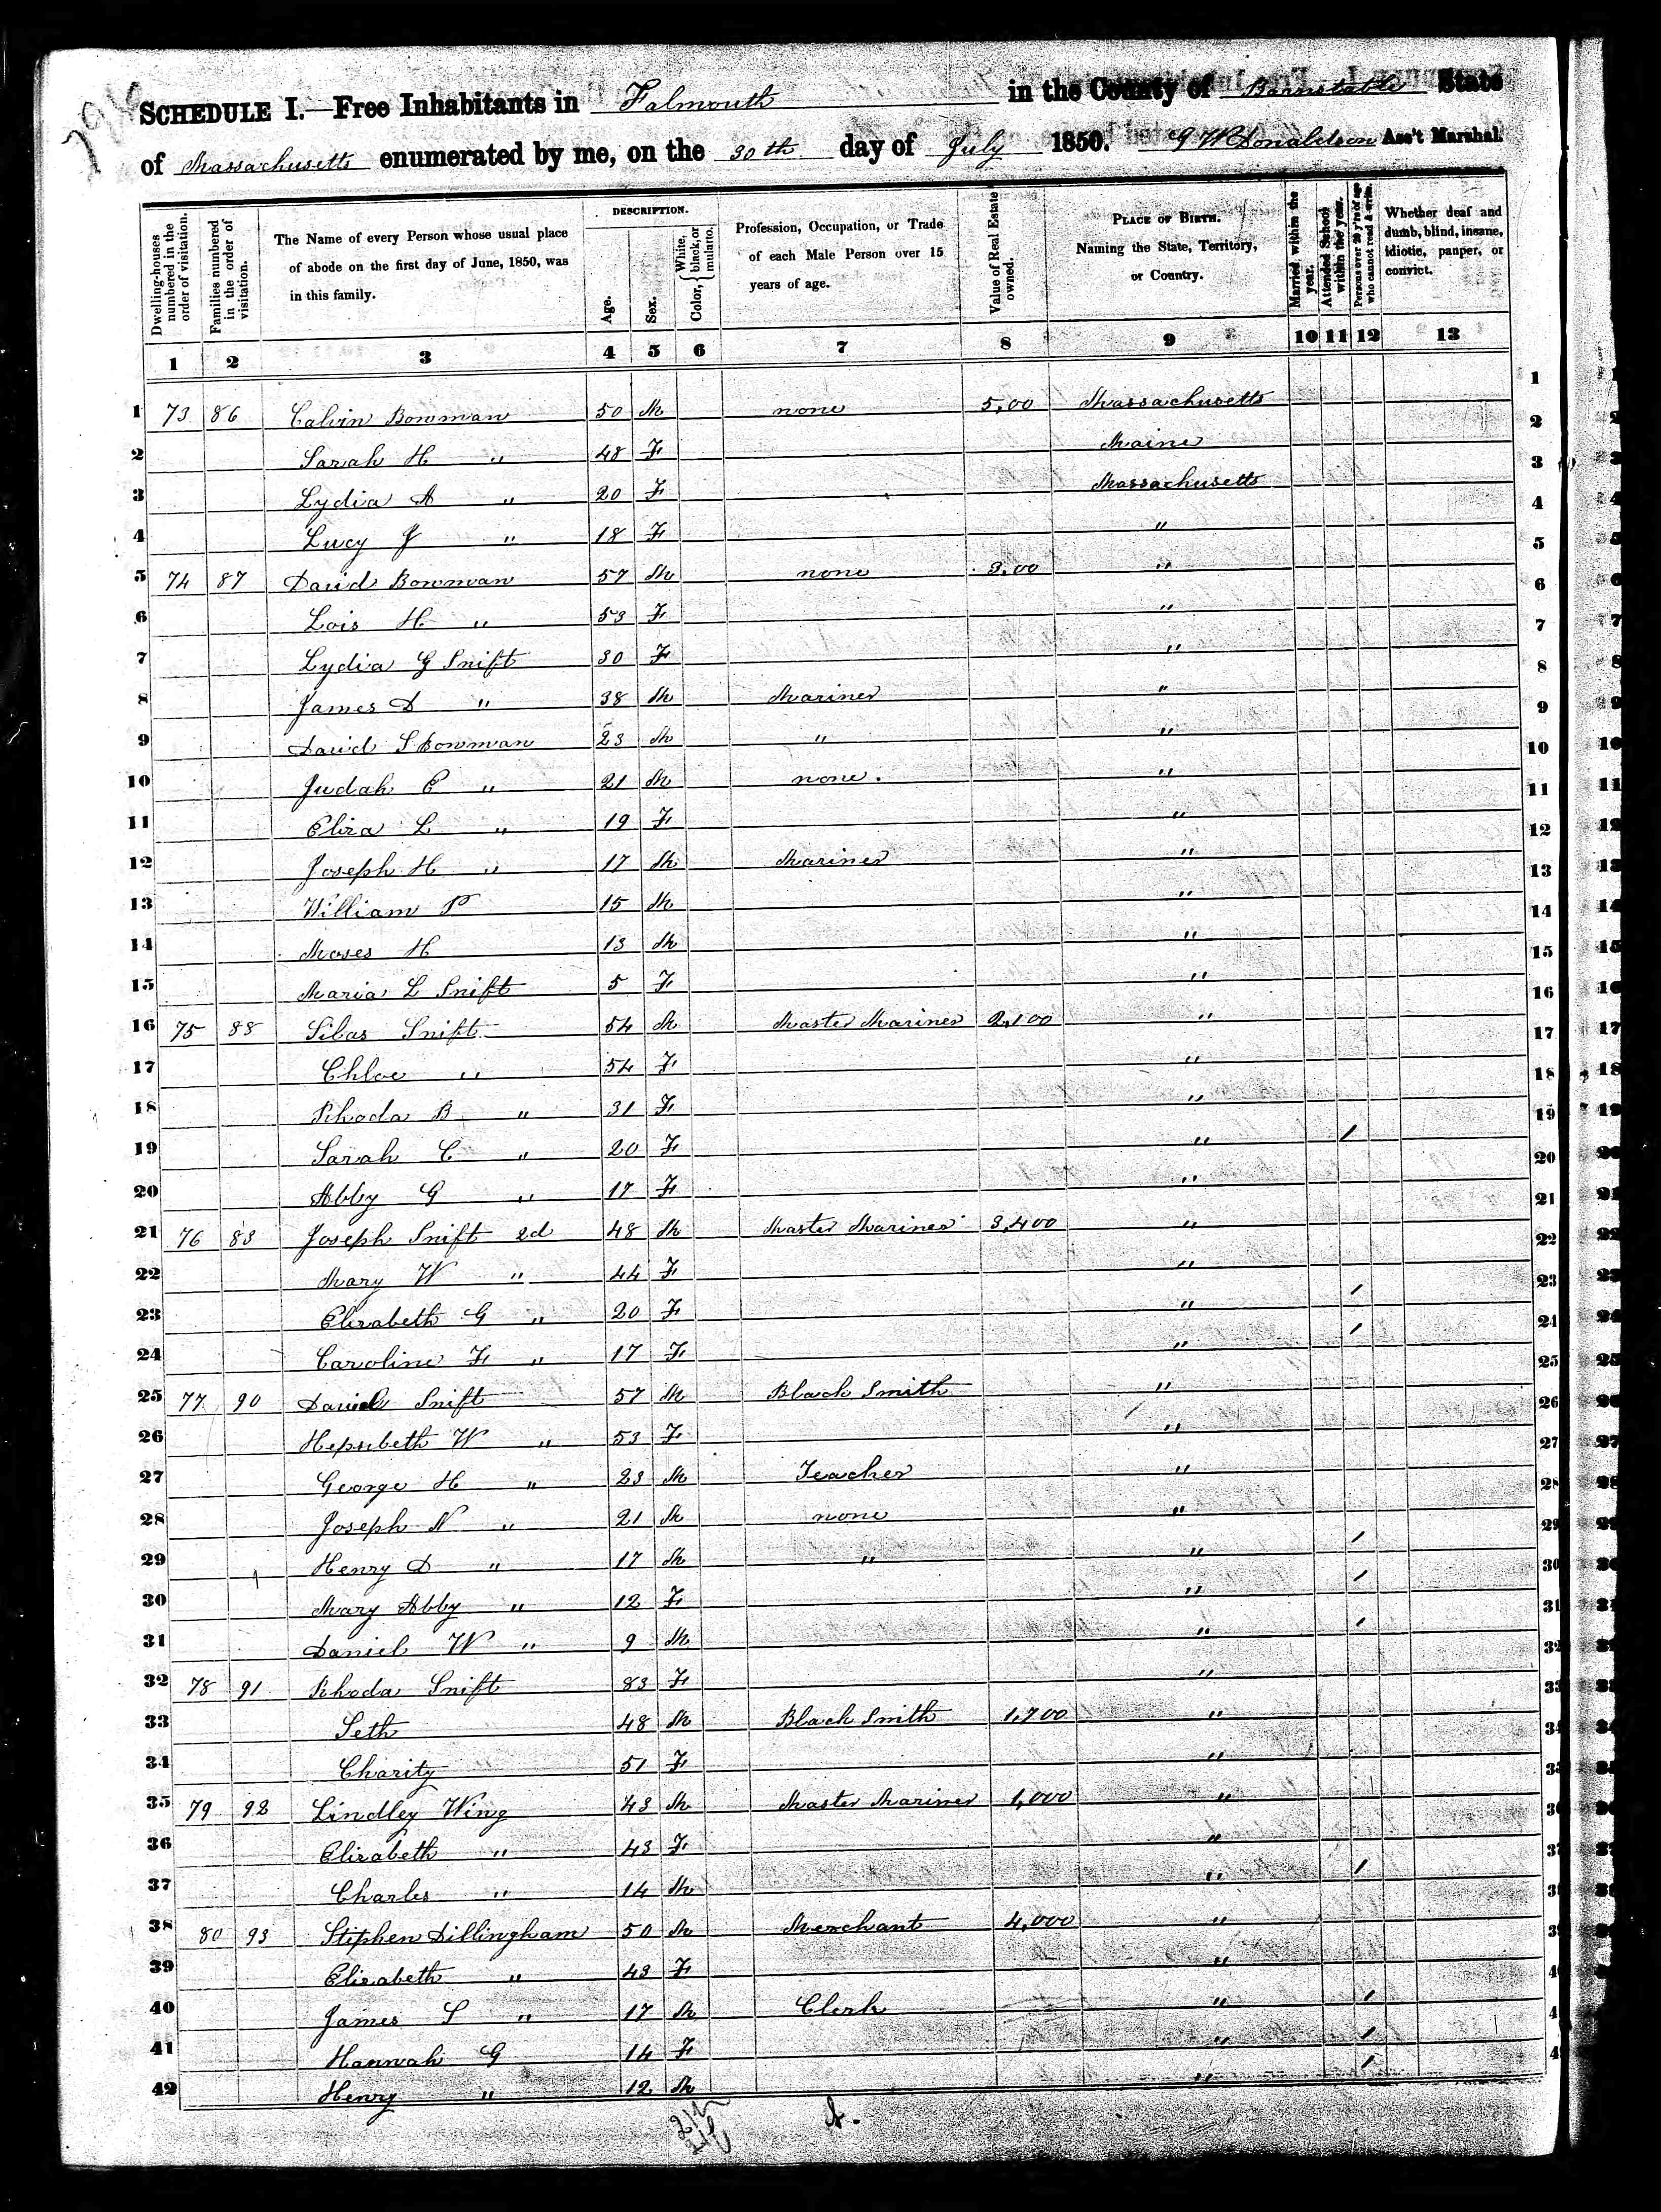 SCHEDULE I.—Free Inhabitants in Falmouth in the County of Barnstable State
of Massachusetts enumerated by me, on the 30th day of July 1850. G W Donaldson Ass't Marshal.
Dwelling-houses numbered in the order of visitation.
Families numbered in the order of visitation.
The Name of every Person whose usual place of abode on the first day of June, 1850, was in this family.
DESCRIPTION.
Age.
Sex.
Color, { White, black, or mulatto.
Profession, Occupation, or Trade of each Male Person over 15 years of age.
Value of Real Estate owned.
PLACE OF BIRTH. Naming the State, Territory, or Country.
Married within the year.
Attended School within the year.
Persons over 20 y'rs of age who cannot read & write.
Whether deaf and dumb, blind, insane, idiotic, pauper, or convict.
1 2 3 4 5 6 7 8 9 10 11 12 13
1 73 86 Calvin Bowman 50 M none 5,00 Massachusetts 1
2 Sarah H " 48 F Maine 2
3 Lydia A " 20 F Massachusetts 3
4 Lucy J " 18 F " 4
5 74 87 David Bowman 57 M none 3,00 " 5
6 Lois H " 53 F " 6
7 Lydia G Swift 30 F " 7
8 James D " 38 M Mariner " 8
9 David S Bowman 23 M " " 9
10 Judah E " 21 M none. " 10
11 Eliza L " 19 F " 11
12 Joseph H " 17 M Mariner " 12
13 William P 15 M " 13
14 Moses H 13 M " 14
15 Maria L Swift 5 F " 15
16 75 88 Silas Swift 54 M Master Mariner 2,100 " 16
17 Chloe " 54 F " 17
18 Rhoda B " 31 F " 18
19 Sarah C " 20 F " / 19
20 Abby G " 17 F " 20
21 76 83 Joseph Swift 2d 48 M Master Mariner 3,400 " 21
22 Mary W " 44 F " 22
23 Elizabeth G " 20 F " / 23
24 Caroline F " 17 F " / 24
25 77 90 Daniel Swift 57 M Black Smith " 25
26 Hepsibeth W " 53 F " 26
27 George H " 23 M Teacher " 27
28 Joseph N " 21 M none " 28
29 Henry D " 17 M " " / 29
30 Mary Abby " 12 F " / 30
31 Daniel W " 9 M " / 31
32 78 91 Rhoda Swift 83 F " 32
33 Seth 48 M Black Smith 1,700 " 33
34 Charity 51 F " 34
35 79 92 Lindley Wing 43 M Master Mariner 1,000 " 35
36 Elizabeth " 43 F " 36
37 Charles " 14 M " / 37
38 80 93 Stephen Dillingham 50 M Merchant 4,000 " 38
39 Elizabeth " 43 F " 39
40 James S " 17 M Clerk " / 40
41 Hannah G 14 F " / 41
42 Henry " 12 M " / 42